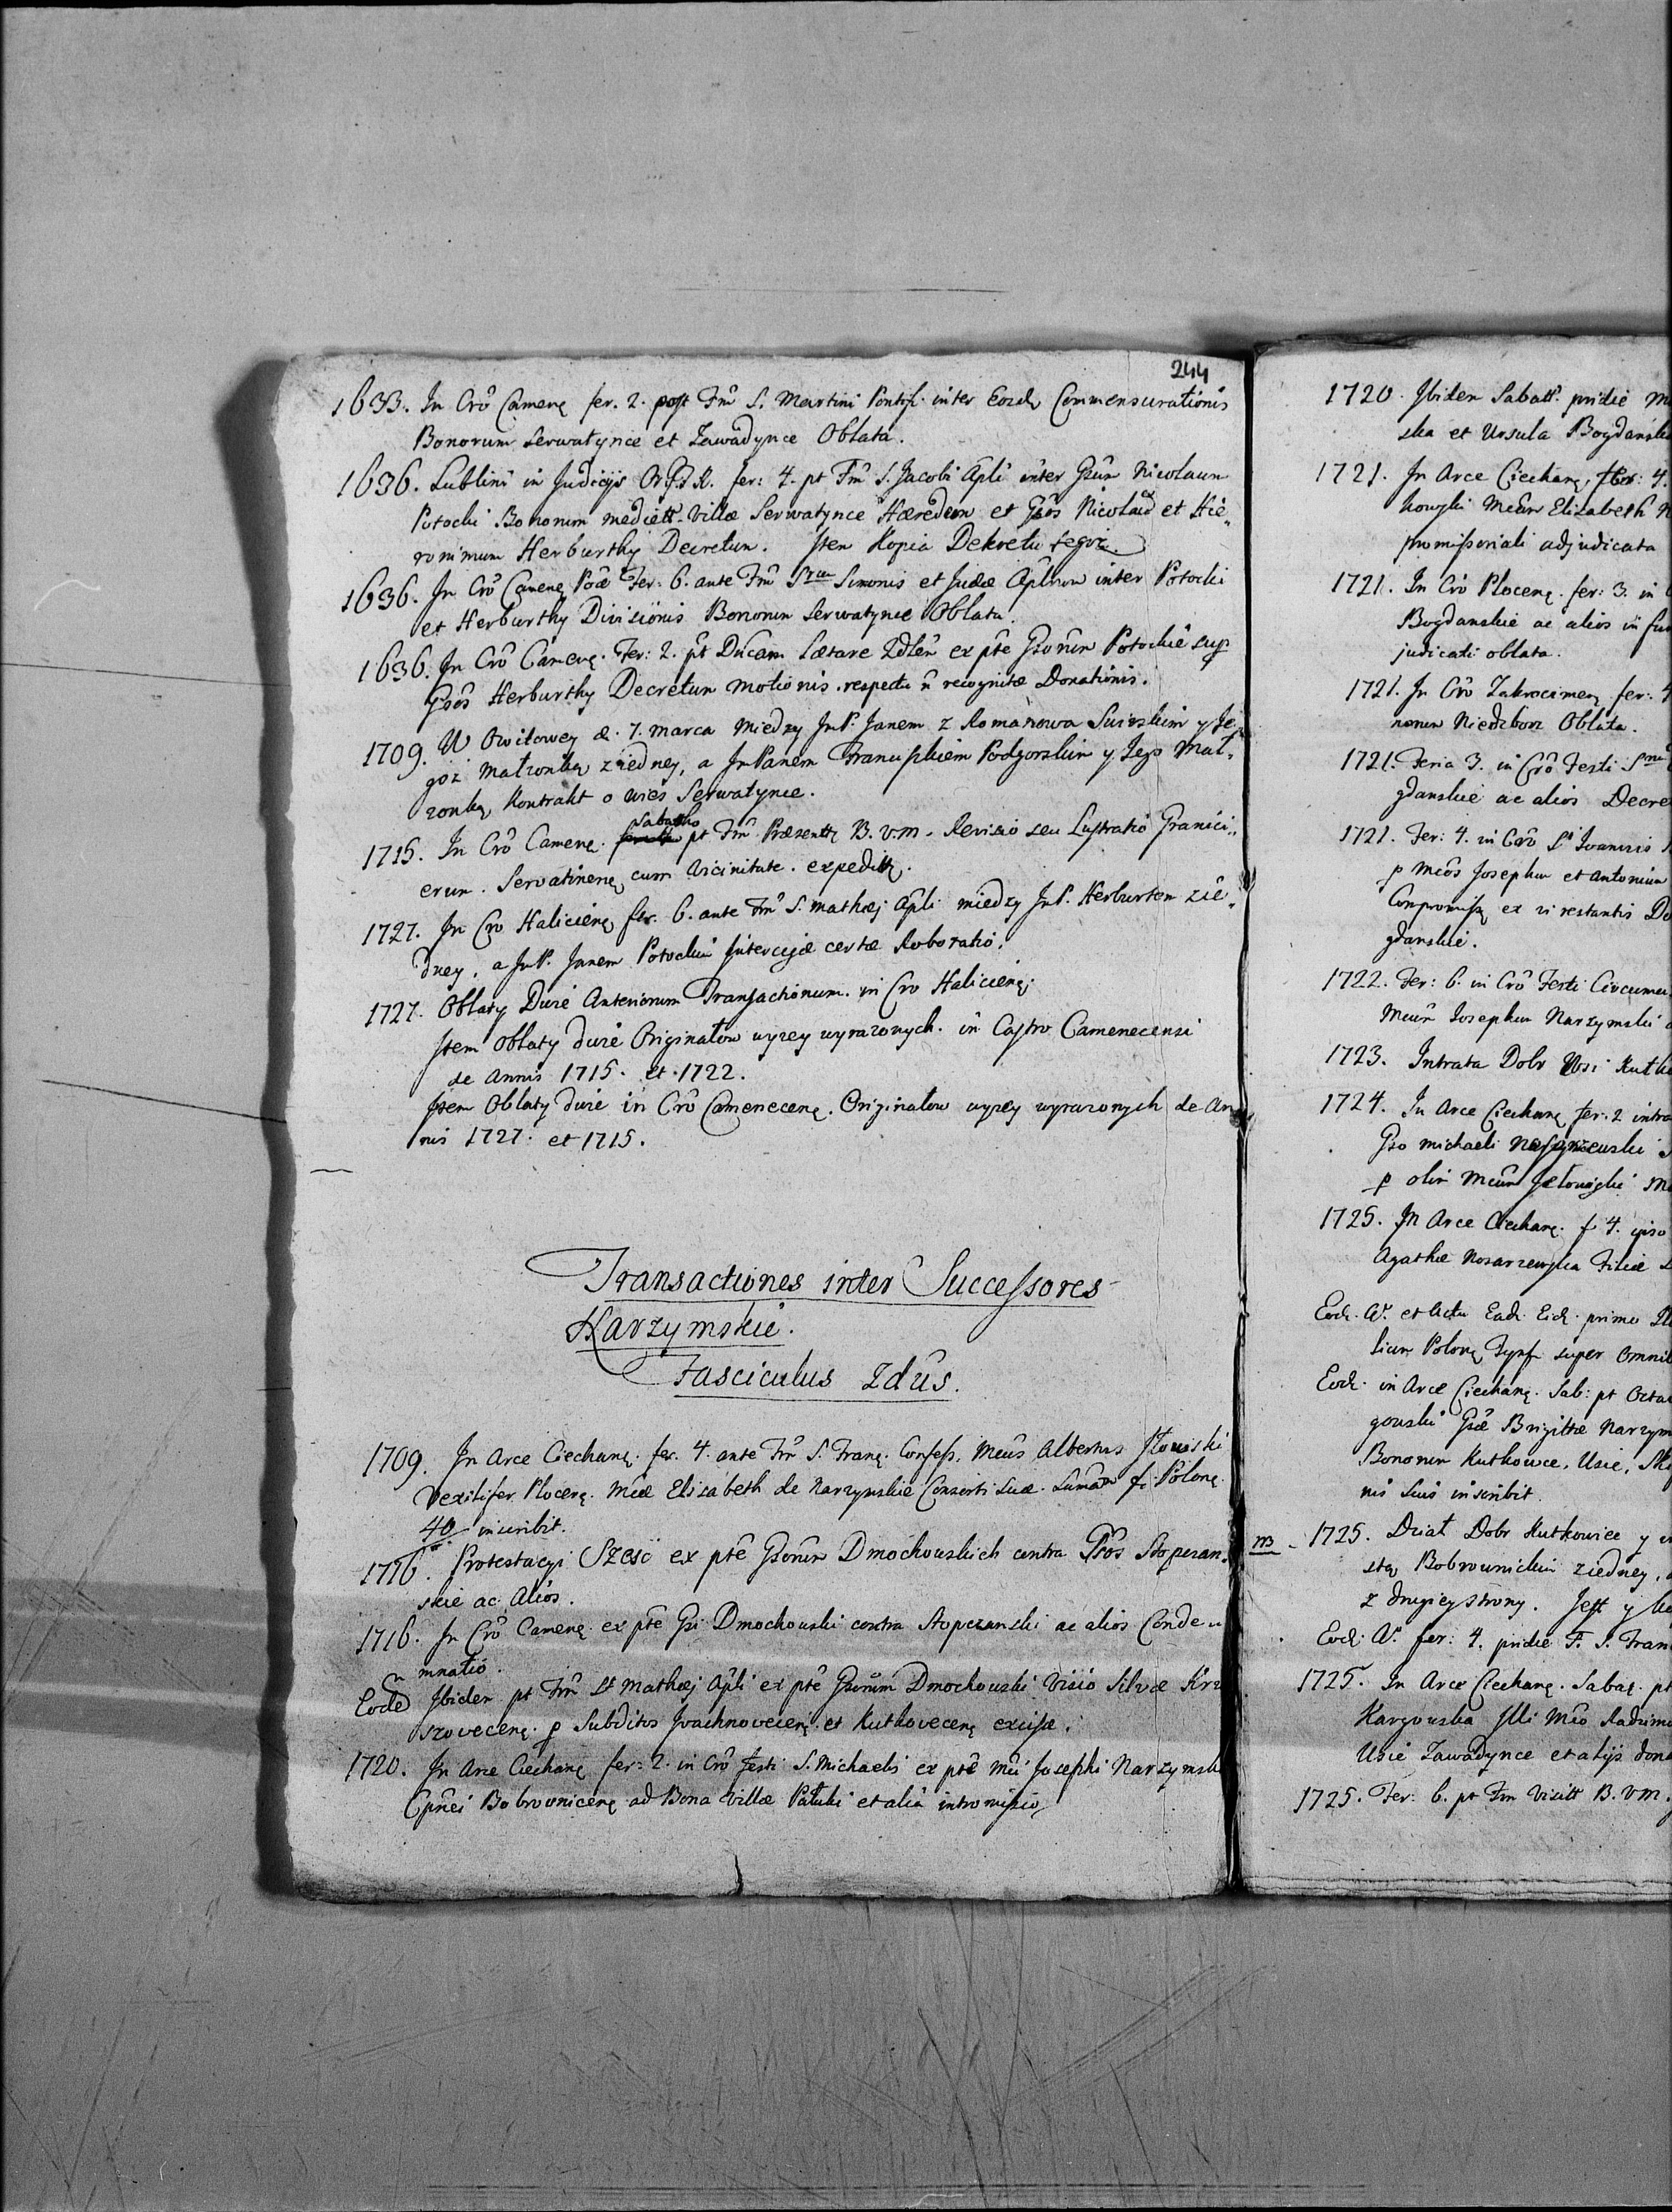 244
1633. In Crô Camenę fer. 2. post Fm̃ S. Martini Pontif. inter Eosdę Commensurationis
Bonorum Serwatynce et Zawadynce Oblata.
1636. Lublini in Judicijs fer: 4. pt Fm̃ S. Jacobi Apli inter Gsûm Nicolaum
Potocki Bonorum mediett. Villæ Serwatynce Hæredem et Gsôs Nicolaũ et Hie„
ronimum Herburthy Decretum. Item Kopia Dekretu tegoż.
1636. In Crô Camenę Poâ Fer: 6. ante Fm̃ Srum Simonis et Judæ Aplrum inter Potocki
et Herburthy Divisionis Bonorum Serwatynce Oblata.
1636. In Crô Camenę. Fer: 2. pt Dñcam Lætare ex pte Gsorûm Potockie sup
Gsôs Herburthy Decretum Motionis. respectu ñ recognitæ Donationis.
1709. W Owiłowey d. 7. Marca Miedzy JmP. Janem z Romanowa Swirskim y Je„
goż Małżonką ziedney, a JmPanem Franciszkiem Podgorskim y Jego Mał„
żonką Kontrakt o wieś Serwatynce.
1715. In Crô Camenę. Sabatho pt Fm̃ Præsentt B. V. M. Revisio seu Lustratio Granici„
erum. Servatinenę cum Vicinitate. expeditt.
1727. In Cro Halicienę fer. 6. ante Fm̃ S. Mathæj Apli miedzy JmP. Herburtem zie„
dney, a JmP. Janem Potockim Intercisæ certæ Roboratio.
1727. Oblaty Duże Anteriorum Transactionum. in Cro Halicienę.
Item Oblaty duże Originałow wyżey wyrażonych. in Castro Camenecensi
de Annis 1715. et. 1722.
Item Oblaty duże in Crô Camenecenę. Originałow wyżey wyrażonych de An
nis 1727. et 1715.
Transactiones inter Successores
Narzymskie.
Fasciculus 2dûs.
1709. In Arce Ciechanę. fer. 4. ante Fm̃ S. Franę. Confess. Mcûs Albertus
Vexilifer Plocenę. Mcæ Elisabeth de Narzymskie Consorti Suæ. Sumam̃ f. Polonę.
40/m inscribit.
1716. Protestacyi Sześć ex pte Gsorûm Dmochowskich contra Gsôs Stopczan„
skie ac Aliôs.
1716. In Crô Camenę ex pte Gsi Dmochowski contra Stopczanski ac alios Conde„
mnatio.
Eodẽ Ibidem pt Fm̃ St Mathæj Apli ex pte Gsorûm Dmochowski Visio Silvæ
szovecenę. p Subditos Ivachnovecenę. et Kutkovecenę excisæ.
1720. In Arce Ciechanę fer: 2. in Crô festi S. Michaelis ex pte Mci Josephi Narzymski
Cpnei Bobrovnicenę ad Bona Villæ Pałuki et alia intromissio
1720. Ibidem Sabatt. pridie
ska et Ursula Bogdanska
1721. In Arce Ciechanę, fer: 4.
Mcûm Elizabeth
promissoriali adjudicata
1721. In Crô Plocenę. fer: 3. in
Bogdanskie ac alios in
judicati oblata.
1721. In Crô Zakrocimenę fer: 4
norum Niedzborz Oblata.
1721. Feria 3. in Crô Festi
gdanskie ac alios Decre
1721. Fer: 4. in Crô St Joannis
p Mcôs Josephum et Antonium
Compromiss ex vi restantis Do
gdanskie.
1722. Fer: 6. in Crô Festi Circumci
Mcûm Josephum Narzymski
1723. Intrata Dobr Wsi Kutko
1724. In Arce Ciechanę fer: 2 intra
Gso Michaeli
p olim Mcûm
1725. In Arce Ciechanę. f 4. ipso
Agathæ Nosarzewska Filiæ
Eodę. A°. et Actu Eadę. Eidę. primo
lium Polonę Tynf super Omnib
Eodę. in Arce Ciechanę. Sab: pt Octa
gowski Gsæ Brigittæ Narzym
Bonorum Kutkowce, Usie,
nis Suis inscribit.
1725. Dział Dobr Kutkowiec y
stą Bobrownickim ziedney,
z drugiey strony. Jest y
Eodę. A°. fer: 4. pridie F. S. Fran
1725. In Arce Ciechanę. Sabaę. pt
Kargowska Illi Mco Radzimi
Usie Zawadynce et alijs dona
1725. Fer: 6. pt Fm̃ Visitt B. V. M.